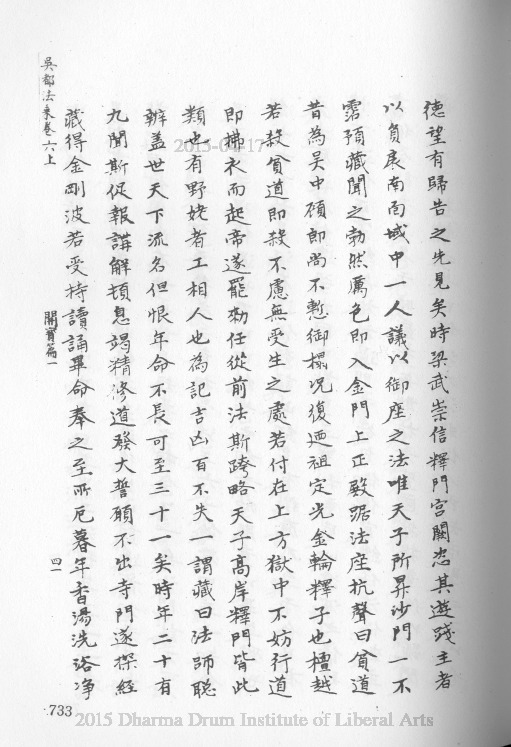 德望有歸告之先見矣時梁武崇信釋門宮闕恣其遊踐主者
以負扆南面域中一人議以御座之法唯天子所昇沙門一不
霑預藏聞之勃然厲色即入金門上正殿踞法座抗聲曰貧道
昔為吳中顧郎尚不慙御榻況復迺祖定光金輪釋子也檀越
若殺貧道即殺不慮無受生之處若付在上方獄中不妨行道
即拂衣而起帝遂罷勑任從前法斯跨略天子高岸釋門皆此
類也有野姥者工相人也為記吉凶百不失一謂藏曰法師聰
辯蓋世天下流名但恨年命不長可至三十一矣時年二十有
九聞斯促報講解頓息竭精修道發大誓願不出寺門遂探經
藏得金剛波若受持讀誦畢命奉之至所厄暮年香湯洗浴净
吳都法乘卷六上
開寶篇一
四一
733
2015-04-17
2015 Dharma Drum Institute of Liberal Arts